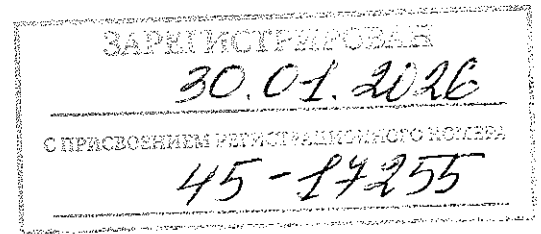 ЗАРЕГИСТРИРОВАН
30.01.2026
С ПРИСВОЕНИЕМ РЕГИСТРАЦИОННОГО НОМЕРА
45-17255